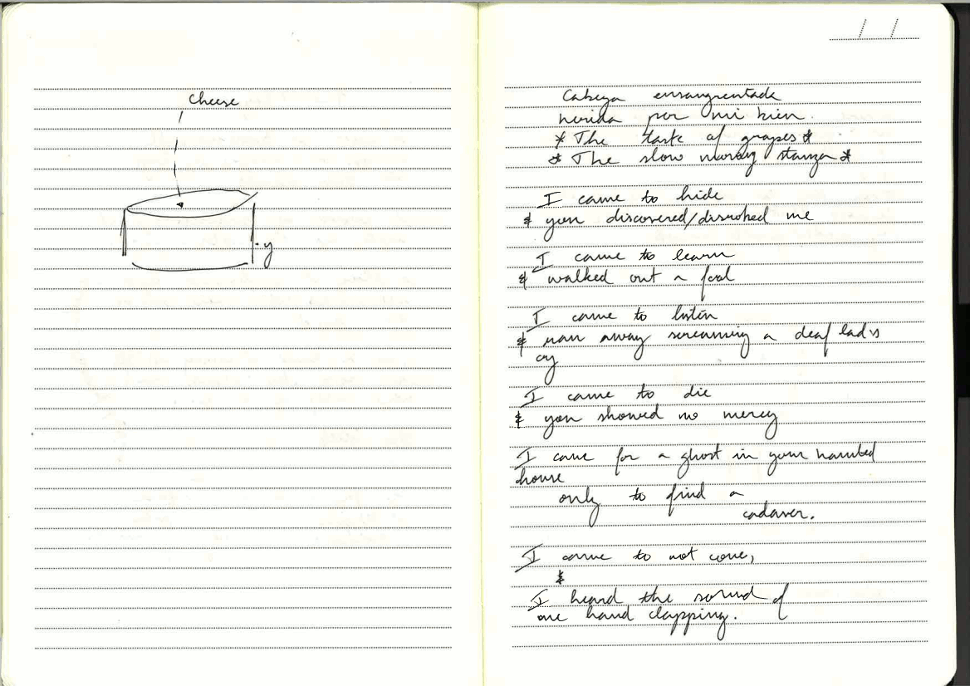 cheese
y
Cabeza ensangrentada
herida por mi bien.
* The task of grapes *
* The slow stanza *
I came to hide
& you discovered/disrobed me
I came to learn
& walked out a fool
I came to listen
& ran away screaming a deaf lad's
cry
I came to die
& you showed no mercy
I came for a ghost in your haunted
house
only to find a
cadaver.
I came to not come,
&
I heard the sound of
one hand clapping.